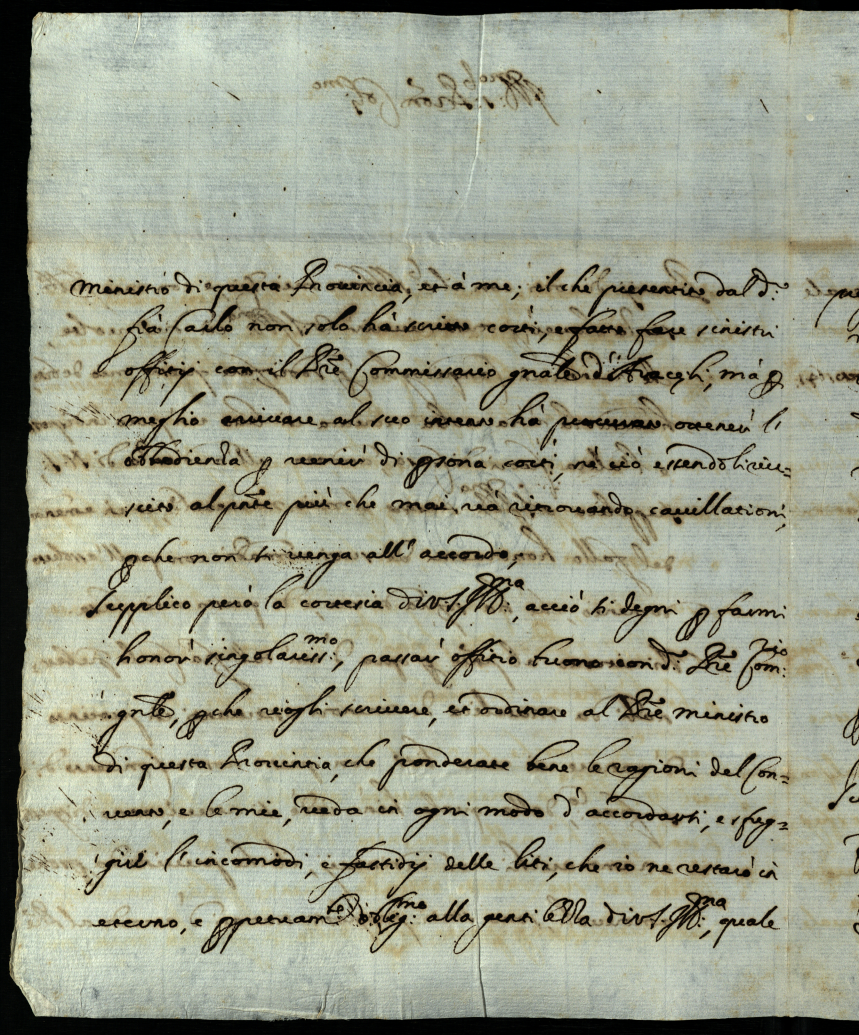 ministro di questa Provincia, et à me; il che presentito dal d:
frà Carlo non solo hà scritto costì, e fatto fare sinistri
offitij con il Pre Commissario gnale d' Fraceli, mà p
meglio arrivare al suo intento hà procurato ottenere l'
obbedienza p venire di psona costì, nè ciò essendoli riu=
scito al pnte più che mai và ritrovando cavillationi,
pche non si venga all' accordo,
Supplico però la cortesia di V.S. Ill:ma, acciò si degni p farmi
honor singolariss:mo, passar offitio buono con d: Pre Com:rio
gnle, pche vogli scrivere, et ordinare al Pre ministro
di questa Provincia, che ponderate bene le ragioni del Con=
vento, e le mie, veda in ogni modo d' accordarsi, e sfug=
gire l' incomodi, e fastidij delle liti, che io ne restarò in
eterno, e ppetuamte oblig:mo alla gentilezza di V.S. Ill:ma, quale